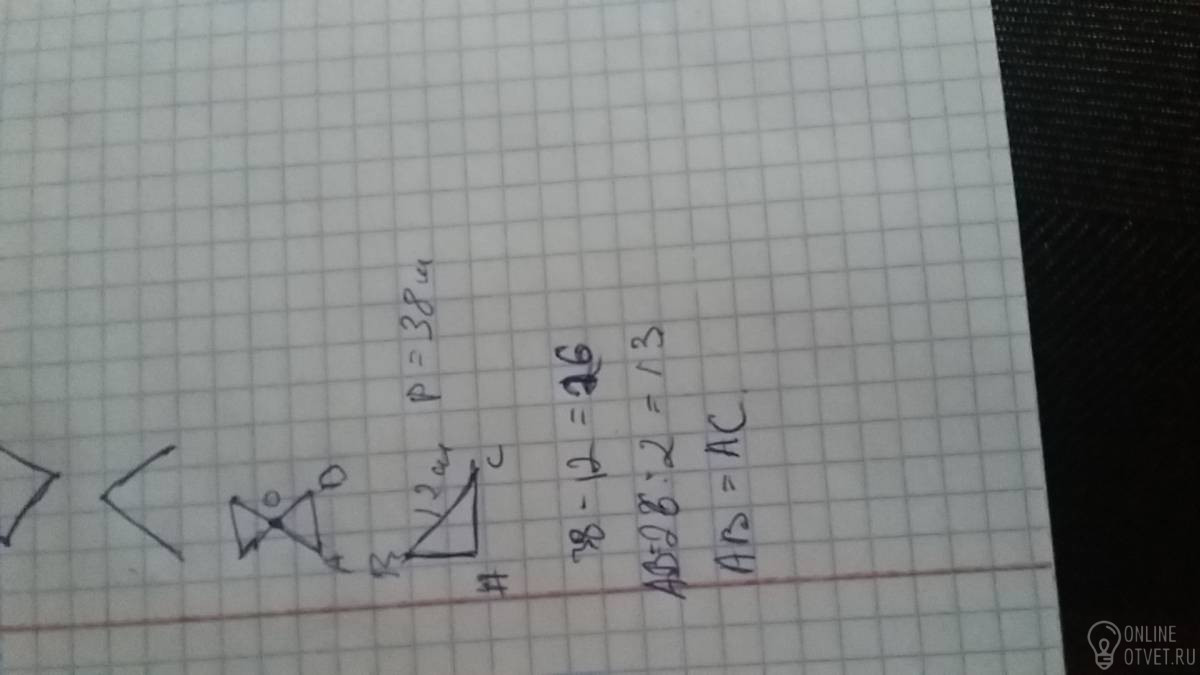 O
A D
B 12 см P = 38 см
A C
38 - 12 = 26
AB = 26 : 2 = 13
AB = AC.
ONLINE
OTVET.RU